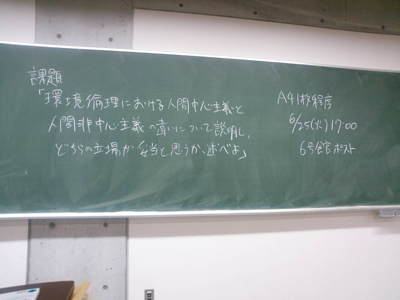 課題
「環境倫理における人間中心主義と
人間非中心主義の違いについて説明し、
どちらの立場が妥当と思うか、述べよ」
A4 1枚程度
6/25(火)17:00
6号館ポスト